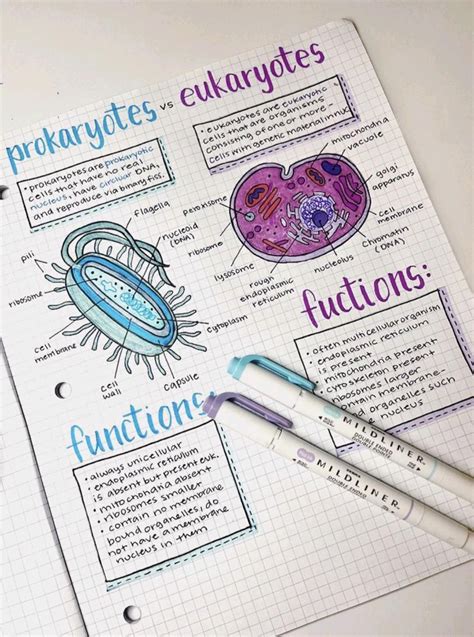 prokaryotes vs eukaryotes
• prokaryotes are prokaryotic
cells that have no real
nucleus, have circluar DNA,
and reproduce via binary fics.
• eukaryotes are eukaryotic
cells that are organisms
consisting of one or more -
cells with genetic material in nuc
flagella
nucleoid
(DNA)
pili
ribosome
cell
membrane
cell
wall
capsule
cytoplasm
mitochondria
vacuole
golgi
apparatus
cell
membrane
chromatin
(DNA)
nucleolus
rough
endoplasmic
reticulum
lysosome
ribosome
peroxisome
functions:
• always unicellular
• endoplasmic reticulum
is absent but present euk.
• mitochondria absent
• ribosomes smaller
• contain no membrane
bound organelles; do
not have a membrane
nucleus in them
fuctions:
• often multicellular organism
• endoplasmic reticulum
is present
• mitochondria present
• cytoskeleton present
• ribosomes larger
contain membrane
organelles such
nucleus
MILDLINER
DOUBLE ENDED
MILDLINER
DOUBLE ENDED